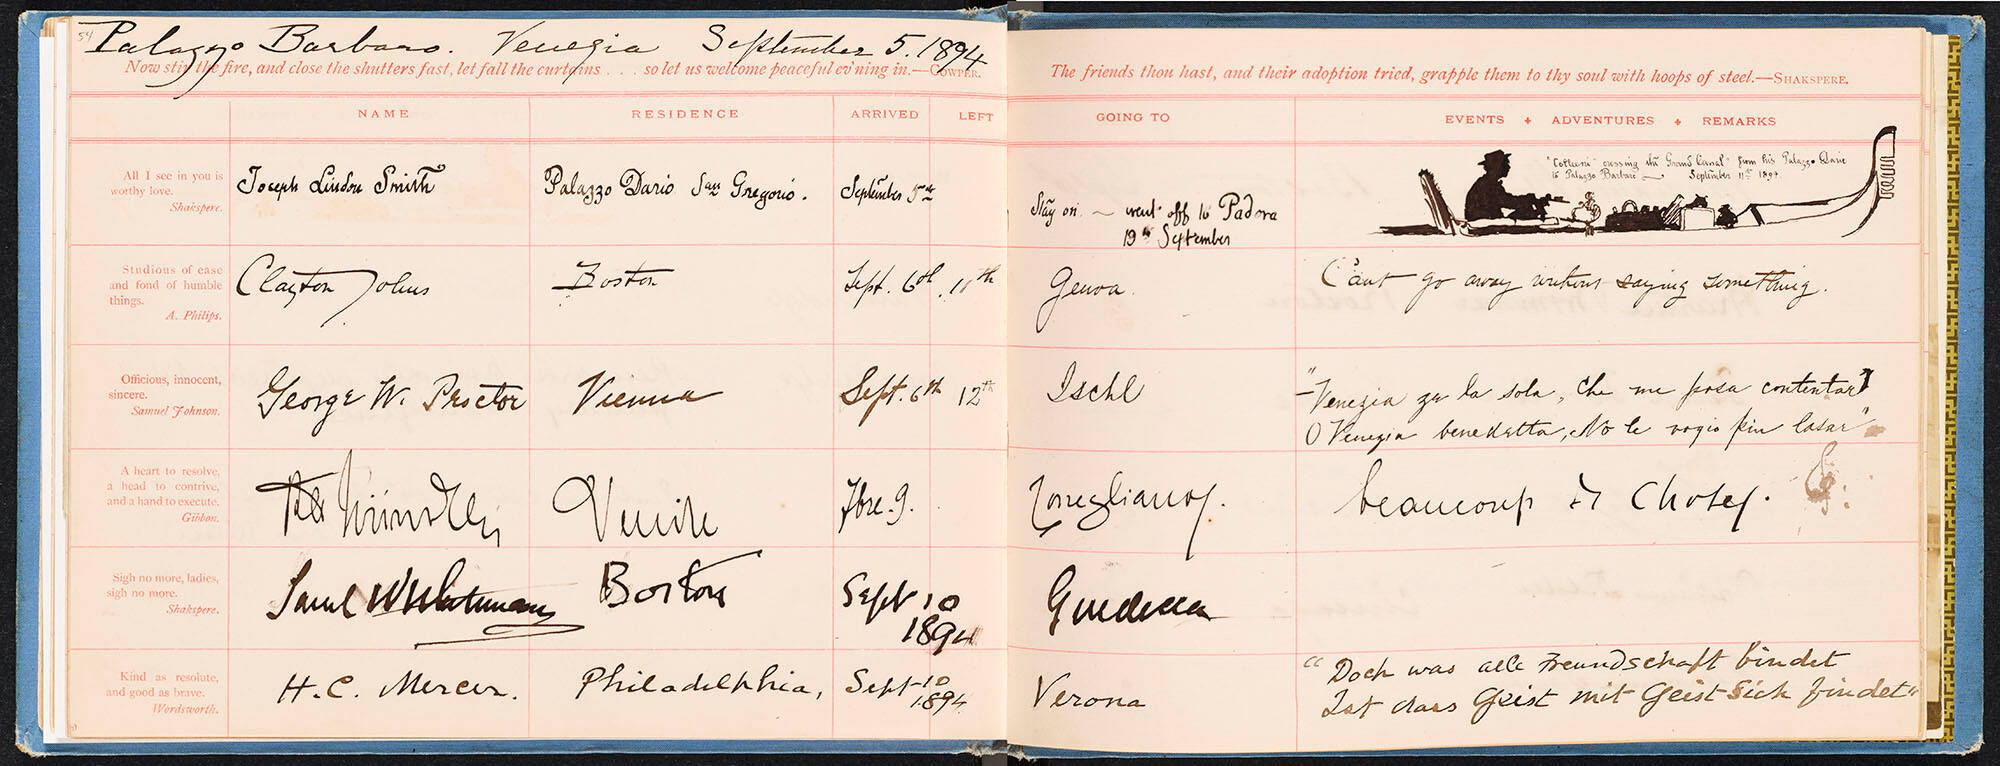 54
Palazzo Barbaro. Venezia September 5. 1894
Now stir the fire, and close the shutters fast, let fall the curtains . . . so let us welcome peaceful ev'ning in.—COWPER.
NAME RESIDENCE ARRIVED LEFT
All I see in you is
worthy love.
Shakspere.
Joseph Lindon Smith Palazzo Dario San Gregorio. September 5th
Studious of ease
and fond of humble
things.
A. Philips.
Clayton Johns Boston Sept. 6th. 11th
Officious, innocent,
sincere.
Samuel Johnson.
George W. Proctor Vienna Sept. 6th 12th
A heart to resolve,
a head to contrive,
and a hand to execute.
Gibbon.
Venise 7bre. 9.
Sigh no more, ladies,
sigh no more.
Shakspere.
Boston Sept 10
1894
Kind as resolute,
and good as brave.
Wordsworth.
H. C. Mercer. Philadelphia, Sept 10
1894
The friends thou hast, and their adoption tried, grapple them to thy soul with hoops of steel.—SHAKSPERE.
GOING TO EVENTS + ADVENTURES + REMARKS
"Cotterini" crossing the "Grand Canal" from his Palazzo Dario
to Palazzo Barbaro — September 11th 1894
Stay on — went off to Padova
19th September
Genoa. Can't go away without saying something.
Ischl
"Venezia ze la sola, Che me posa contentar
O Venezia benedetta, No te vogio piu lasar"
beaucoup de Choses.
Giudecca
Verona
"Doch was alle Freundschaft bindet
Ist dass Geist mit Geist sich findet"